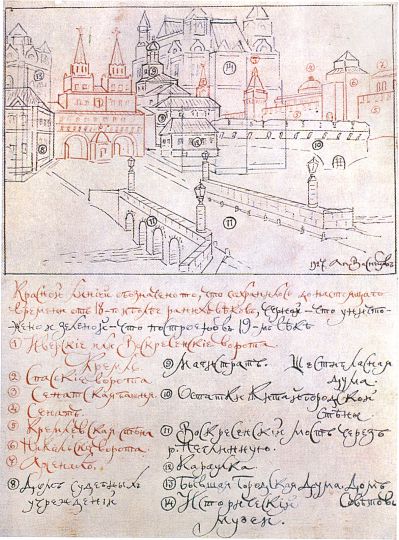 13
14
9
12
8
10
11
11
1927. Ап. Васнецовъ
Красной линіей обозначено то, что сохранилось до настоящаго
времени отъ 18-го и болѣе раннихъ вѣковъ, черной – что уничто-
жено и зеленой – что построено въ 19-мъ вѣкѣ
1 Иверскіе или Воскресенскіе ворота
Кремль
2 Спаскіе ворота
3 Сенатская башня
4 Сенатъ
5 Кремлевская стѣна
6 Никольскія ворота
7 Арсеналъ
8 Домъ судебныхъ
учрежденій
9 Магистратъ. Шестигласная
Дума
10 Остатки Китайгородской
Стѣны
11 Воскресенскій мостъ черезъ
р. Неглинную.
12 Караулка
13 Бывшая Городская Дума. Домъ
Совѣтовъ
14 Историческій
Музей.